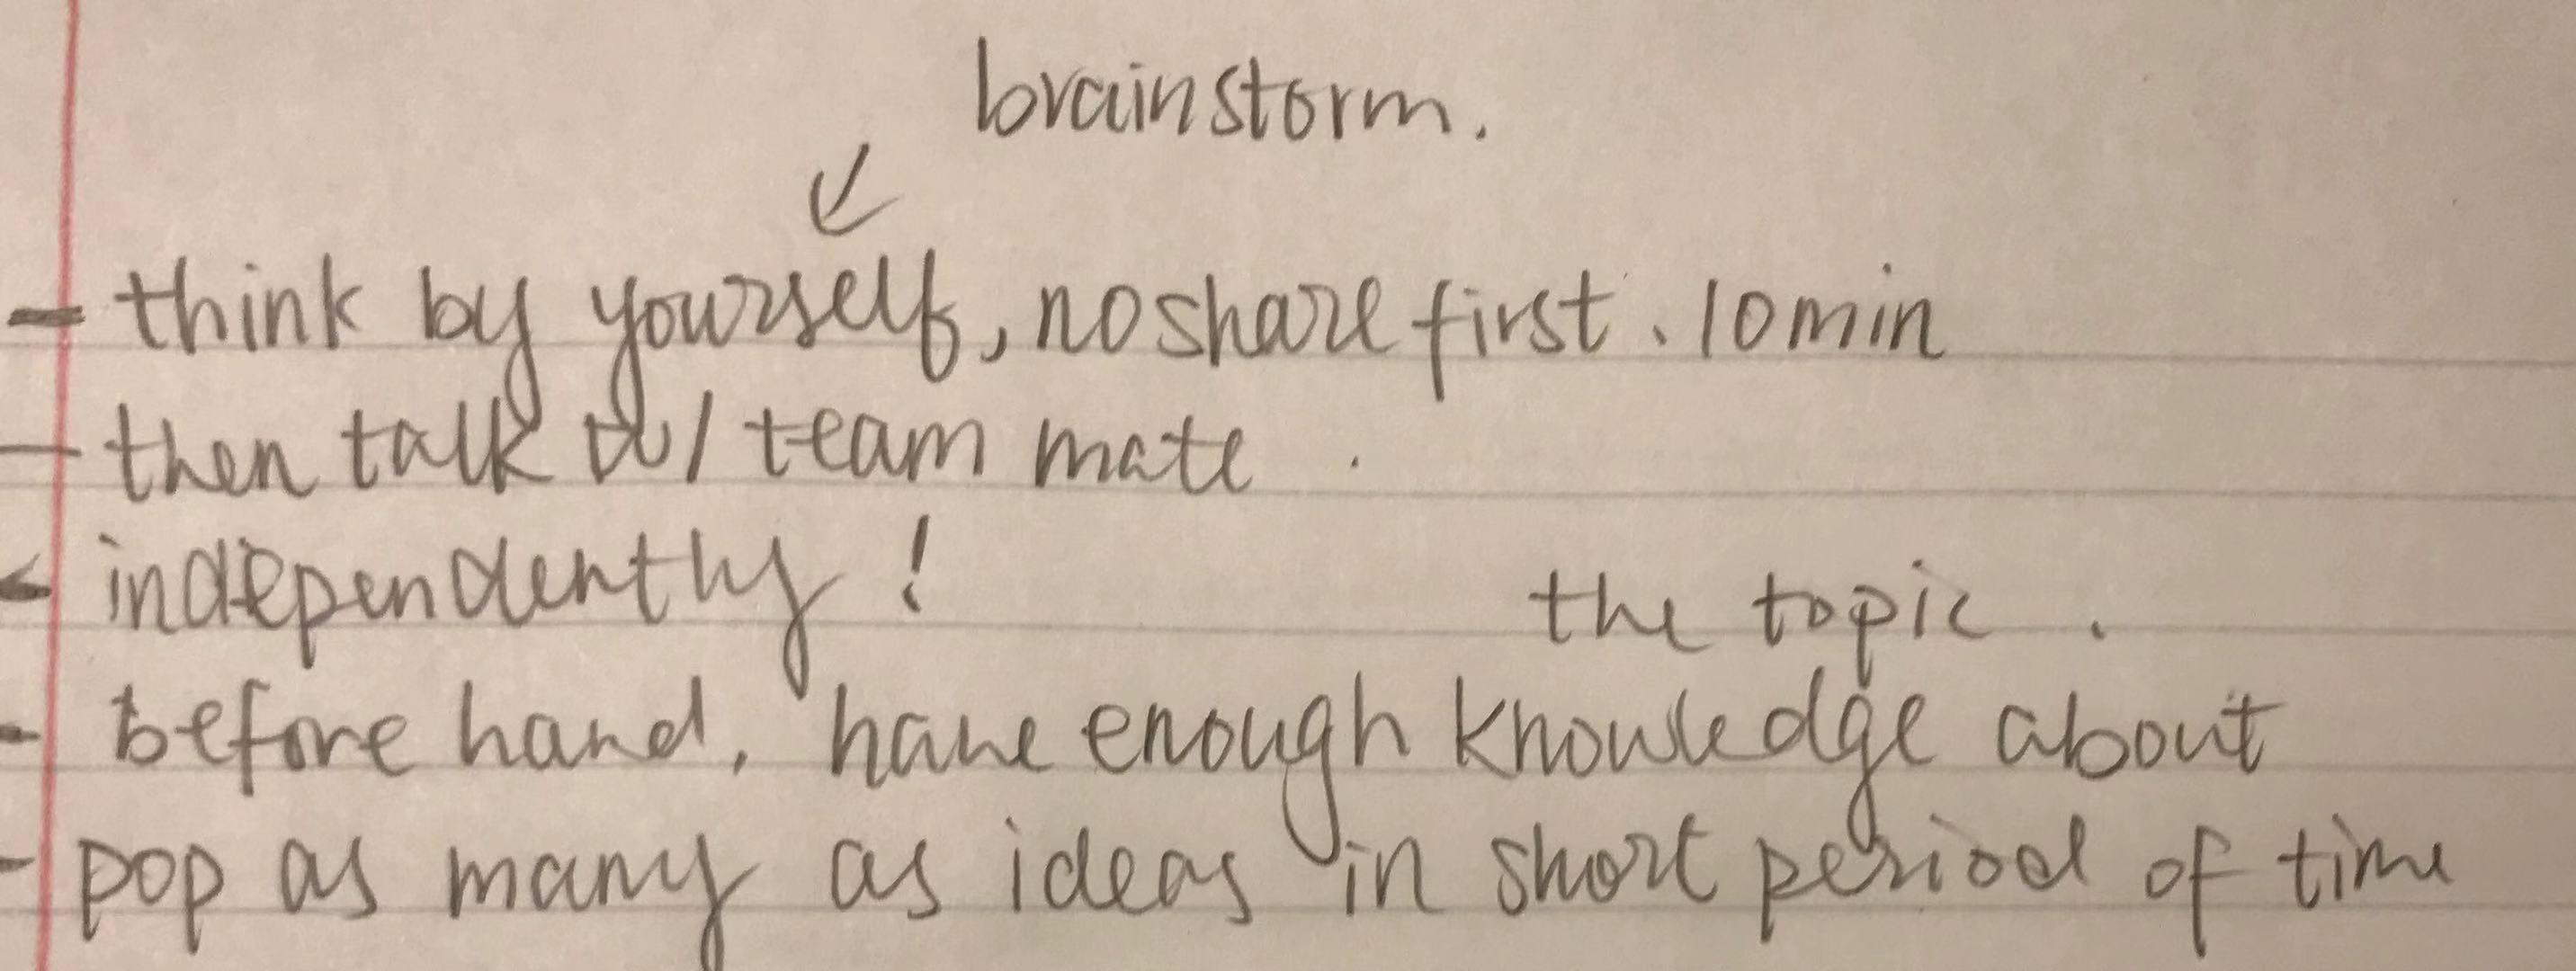 brainstorm.
- think by yourself, no share first. 10 min
- then talk w/ team mate.
- independently!
the topic.
- before hand, have enough knowledge about
- pop as many as ideas in short period of time